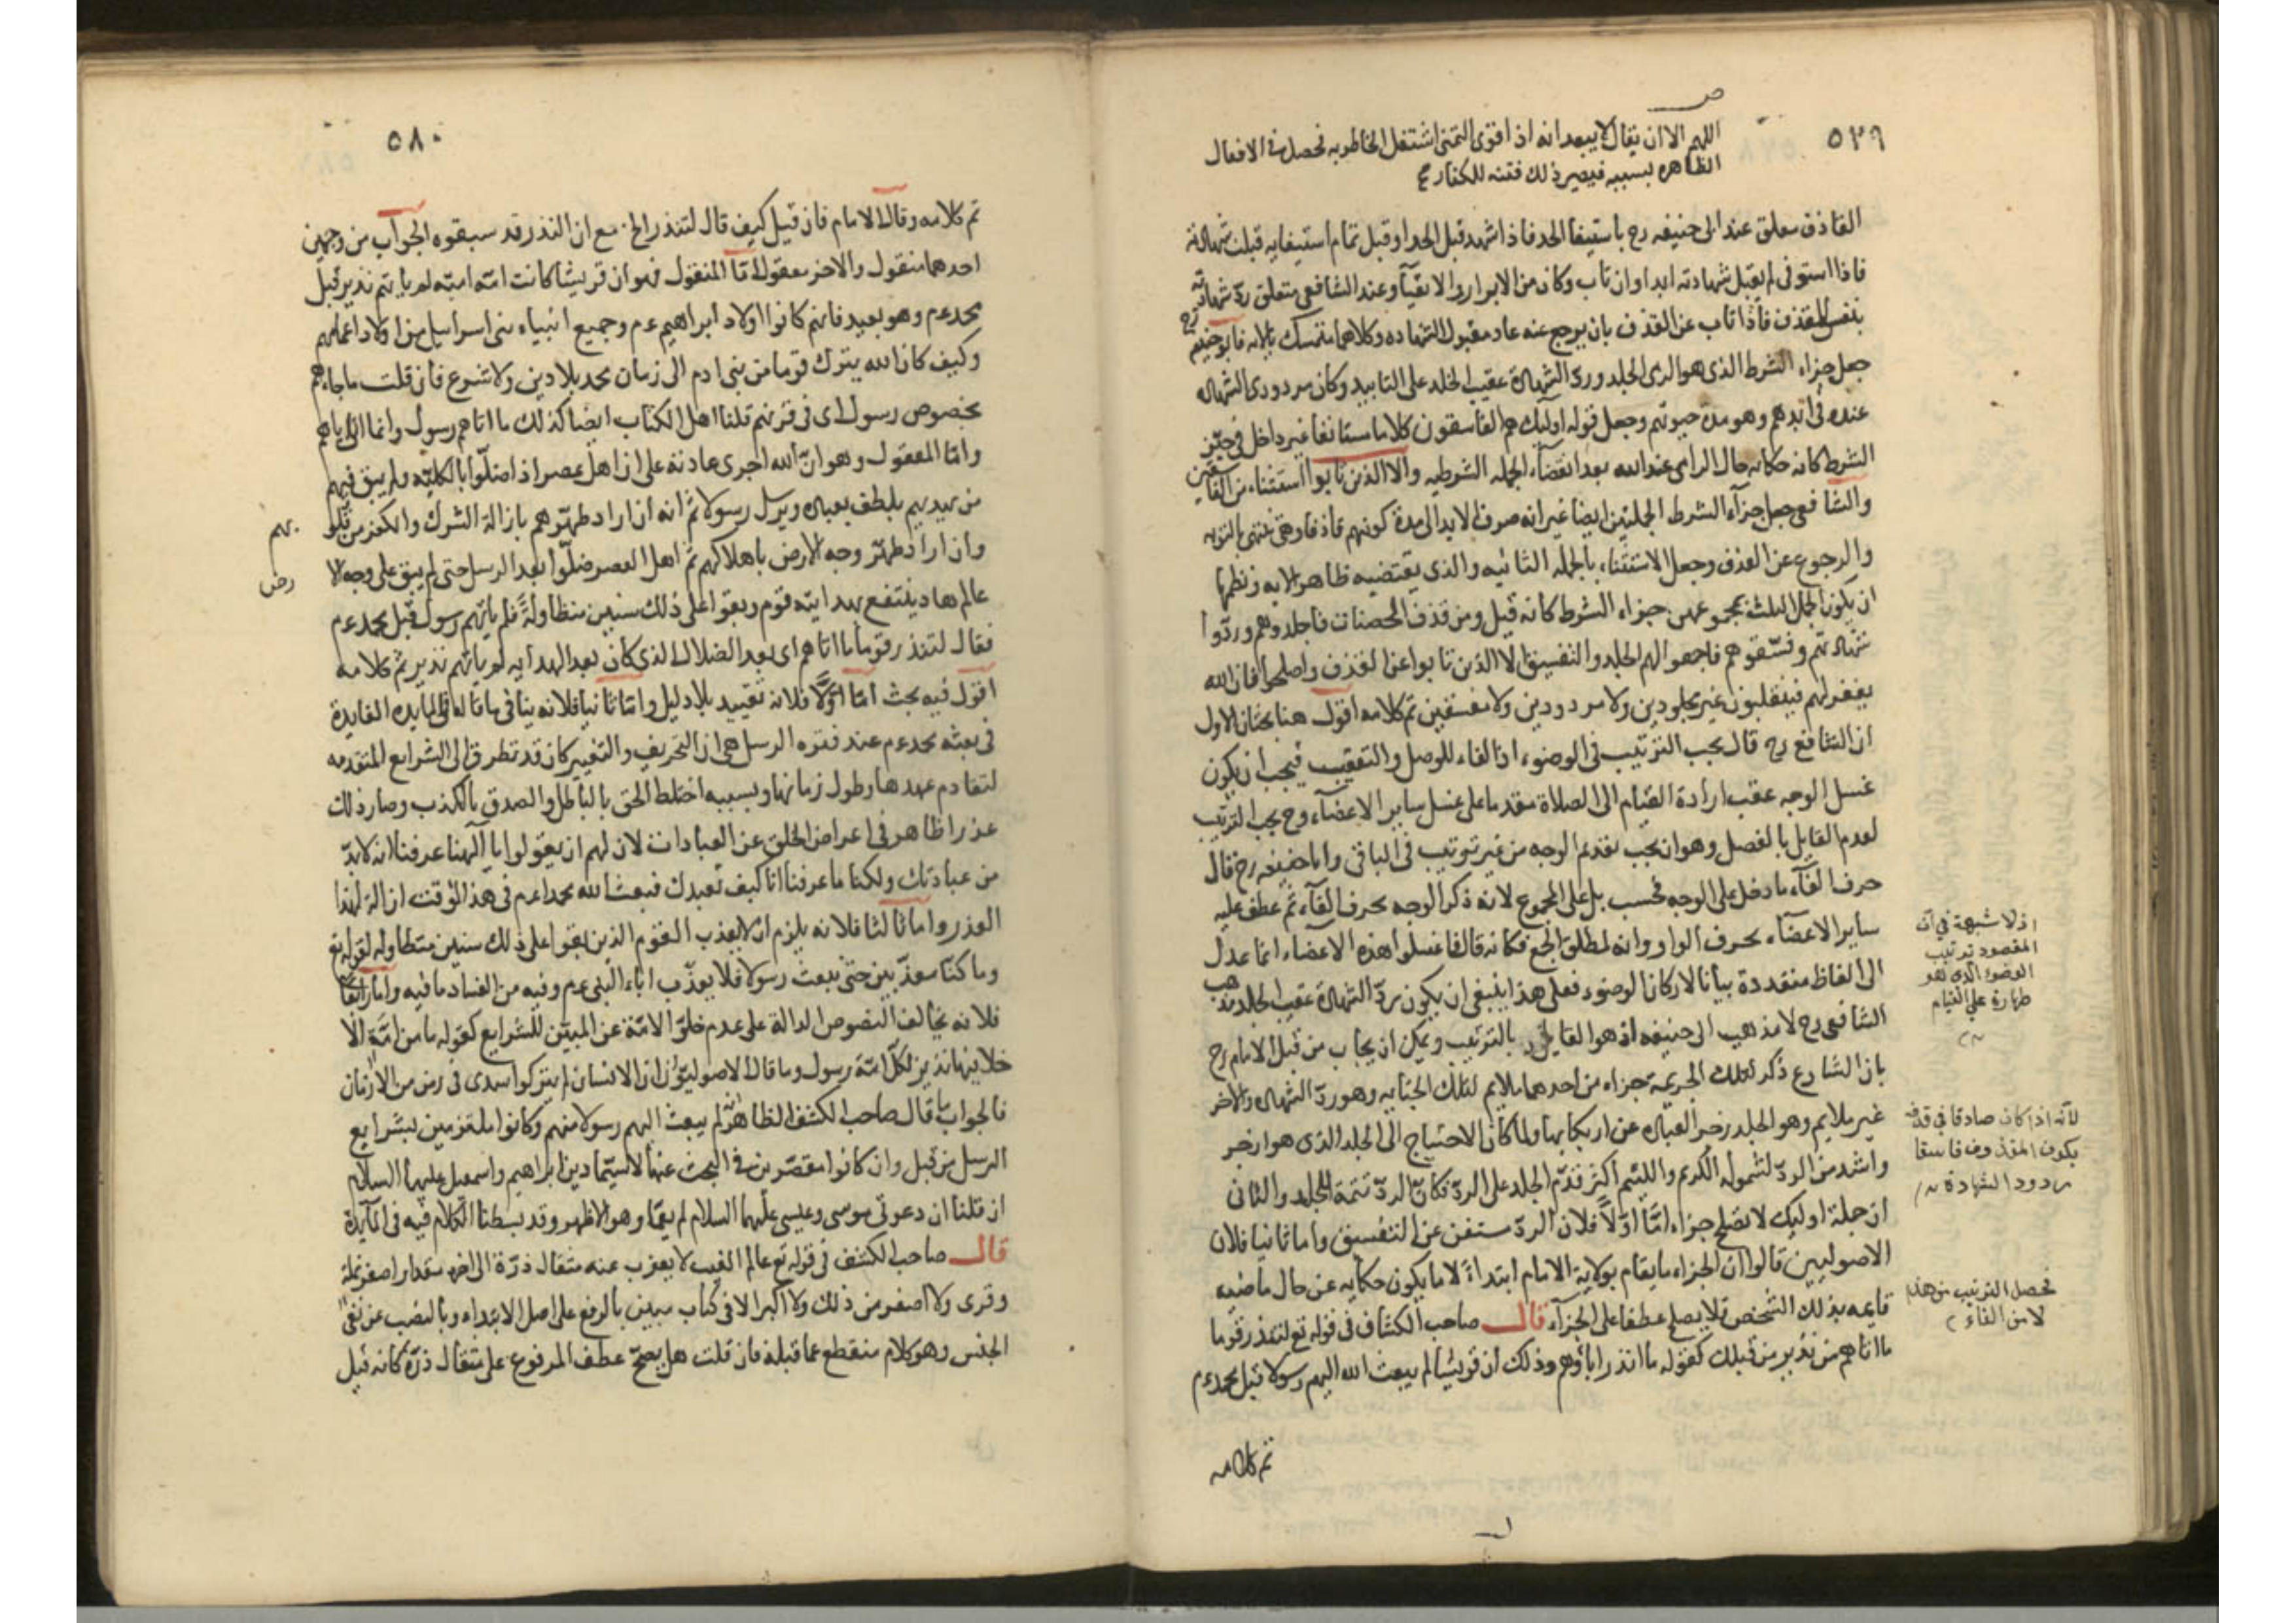 ٥٧٩
اللهم الا ان يقال لا يبعد انه اذا قوى التمنى اشتغل الخاطر به فحصل فى الافعال
الظاهره بسببه فيصير ذلك فتنه للكفار
القاذف معلق عند ابى حنيفه رح باستيفا الحد فاذا شهد قبل الحد او قبل تمام استيفايه قبلت شهادته
فاذا استوفى لم يقبل شهادته ابدا وان تاب وكان من الابرار والاتقيآ وعند الشافعى متعلق رد شهادته
بنفس القذف فاذا تاب عن القذف بان يرجع عنه عاد مقبول الشهاده وكلاهما متمسك بالايه فابو حنيفه رح
جعل جزاء الشرط الذى هو الرمى الجلد ورد الشهادة عقيب الجلد على التابيد وكان مردودى الشهاده
عنده فى ابدهم وهو مدة حيوتهم وجعل قوله اوليك هم الفاسقون كلاما مستانفا غير داخل فى حيّز
الشرط كانه حكايه حال الرامى عند الله بعد انقضآء الجمله الشرطيه والا الذين تابوا استثناء من الفاسقين
والشافعى جعل جزآء الشرط الجملتين ايضا غير انه صرف الابد الى مدة كونهم قاذفا وهى تنتهى بالتوبه
والرجوع عن القذف وجعل الاستثناء بالجمله الثانيه والذى يقتضيه ظاهر الايه ونظمها
ان يكون الجمل الثلث بمجموعهن جزاء الشرط كانه قيل ومن قذف المحصنات فاجلدوهم وردوا
شهادتهم وفسّقوهم فاجمعوا لهم الجلد والتفسيق الا الذين تابوا عن القذف واصلحوا فان الله
يغفر لهم فينقلبون غير مجلودين ولا مردودين ولا مفسقين تم كلامه اقول هنا بحثان الاول
ان الشافعى رح قال يجب الترتيب فى الوضوء اذ الفاء للوصل والتعقيب فيجب ان يكون
غسل الوجه عقيب ارادة القيام الى الصلاة مقدما على غسل ساير الاعضآء وح يجب الترتيب
لعدم القايل بالفصل وهو ان يجب تقديم الوجه من غير ترتيب فى الباقى وابا حنيفه رح قال
حرف الفآء ما دخل على الوجه فحسب بل على المجموع لانه ذكر الوجه بحرف الفآء ثم عطف عليه
ساير الاعضآء بحرف الواو وانه لمطلق الجمع فكانه قال فاغسلوا هذه الاعضاء انما عدل
الى الفاظ متعددة بيانا لاركان الوضوء فعلى هذا ينبغى ان يكون رد الشهادة عقيب الجلد مذهب
الشافعى رح لا مذهب ابى حنيفه اذ هو القايل بالترتيب ويمكن ان يجاب من قبل الامام رح
بان الشارع ذكر لتلك الجريمة جزاء من احدهما ملايم لتلك الجنايه وهو رد الشهاده والاخر
غير ملايم وهو الجلد زجر العباد عن ارتكابها ولما كان الاحتياج الى الجلد الذى هو ازجر
واشد من الرد لشموله الكريم واللئيم اكثر قدّم الجلد على الرد فكان الرد تتمة للجلد والثانى
ان جملة اوليك لا تصلح جزاء امّا اوّلاً فلان الرد مستغن عن التفسيق واما ثانيا فلان
الاصوليين قالوا ان الجزاء ما يقام بولاية الامام ابتداءً لا ما يكون حكايه عن حال ماضيه
قايمه بذلك الشخص فلا يصلح عطفا على الجزآء قال صاحب الكشاف فى قوله تع لتنذر قوما
ما اتاهم من نذير من قبلك كقوله ما انذر اباؤهم وذلك ان قريشا لم يبعث الله اليهم رسولا قبل محمد عم
تم كلامه
اذ لا شبهة فى ان
المقصود ترتيب
الوضوء الذى هو
طهارة على القيام
لانه اذا كان صادقا فى قذفه
يكون المقذوف فاسقا
مردود الشهادة
تحصل الترتيب من هذه
لا من الفاء
٥٨٠
تم كلامه وقال الامام فان قيل كيف قال لتنذر الخ مع ان النذر قد سبقوه الجواب من وجهين
احدهما منقول والاخر معقول امّا المنقول فهو ان قريشا كانت امّه اميّه لم ياتهم نذير قبل
محمد عم وهو بعيد فانهم كانوا اولاد ابراهيم عم وجميع انبياء بنى اسراييل من اولاد اعمامهم
وكيف كان الله يترك قوما من بنى ادم الى زمان محمد بلا دين ولا شرع فان قلت ما جاءهم
بخصوص رسول اى فى قرنهم قلنا اهل الكتاب ايضا كذلك ما اتاهم رسول وانما اتى اباهم
وامّا المعقول وهو انّ الله اجرى عادته على ان اهل عصر اذا ضلّوا بالكليّه ولم يبق فيهم
من يهديهم يلطف بعباده ويرسل رسولا ثم انه ان اراد طهّرهم بازالة الشرك والكفر من قلوبهم
وان اراد طهّر وجه الارض باهلاكهم ثم اهل العصر ضلّوا بعد الرسل حتى لم يبق على وجه الارض
عالم هاد ينتفع بهدايته قوم وبقوا على ذلك سنين متطاولةً فلم ياتهم رسول قبل محمد عم
فقال لتنذر قوما ما اتاهم اى بعد الضلال الذى كان بعد الهدايه لم ياتهم نذير تم كلامه
اقول فيه بحث امّا اوّلاً فلانه تقييد بلا دليل وامّا ثانيا فلانه ينافى ما قاله فى المايده الفايدة
فى بعثه محمد عم عند فتره الرسل هى ان التحريف والتغيير كان قد تطرق الى الشرايع المتقدمه
لتقادم عهدها وطول زمانها وبسببه اختلط الحق بالباطل والصدق بالكذب وصار ذلك
عذرا ظاهر فى اعراض الخلق عن العبادات لان لهم ان يقولوا يا الهنا عرفنا انه لا بدّ
من عبادتك ولكنا ما عرفنا انا كيف نعبدك فبعث الله محمدا عم فى هذ الوقت ازالة لهذا
العذر واما ثالثا فلانه يلزم ان لا يعذب القوم الذين بقوا على ذلك سنين متطاوله لقوله تع
وما كنّا معذّبين حتى نبعث رسولا فلا يعذّب اباء النبى عم وفيه من الفساد ما فيه واما رابعًا
فلانه يخالف النصوص الدالة على عدم خلوّ الامّة عن المبيّن للشرايع كقوله ما من امّة الا
خلا فيها نذير لكلّ امّة رسول وما قال الاصوليّون ان الانسان لم يتركوا سدى فى زمن من الازمان
فالجواب ما قال صاحب الكشف الظاهر انه لم يبعث اليهم رسولا منهم وكانوا ملتزمين لشرايع
الرسل من قبل وان كانوا مقصّرين فى البحث عنها لا سيّما دين ابراهيم واسمعيل عليهما السلام
ان قلنا ان دعوتى موسى وعيسى عليهما السلام لم يعمّا وهو الاظهر وقد بسطنا الكلام فيه فى المآيدة
قال صاحب الكشف فى قوله تع عالم الغيب لا يعزب عنه مثقال ذرّة الى اخره مقدار اصغر نملة
وقرى ولا اصغر من ذلك ولا اكبر الا فى كتاب مبين بالرفع على اصل الابتداء وبالنصب عن نفى
الجنس وهو كلام منقطع عما قبله فان قلت هل يصحّ عطف المرفوع على مثقال ذرّة كانه قيل